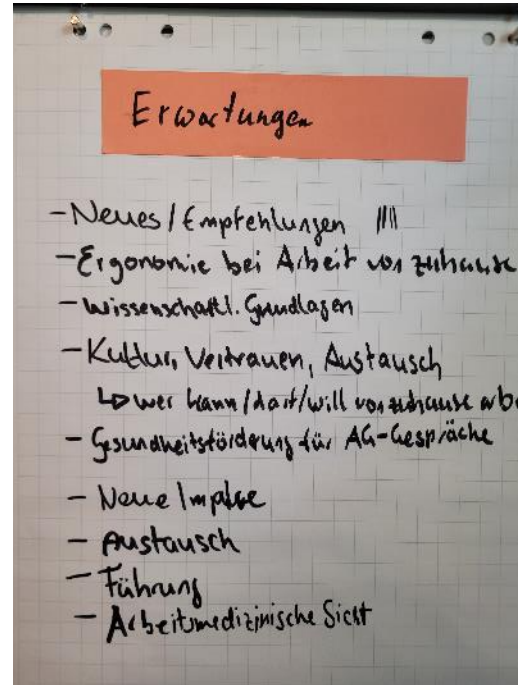 Erwartungen
- Neues/Empfehlungen ||||
- Ergonomie bei Arbeit von zuhause
- Wissenschaftl. Grundlagen
- Kultur, Vertrauen, Austausch
↳ wer kann/darf/will von zuhause arbe
- Gesundheitsförderung für AG-Gespräche
- Neue Impulse
- Austausch
- Führung
- Arbeitsmedizinische Sicht